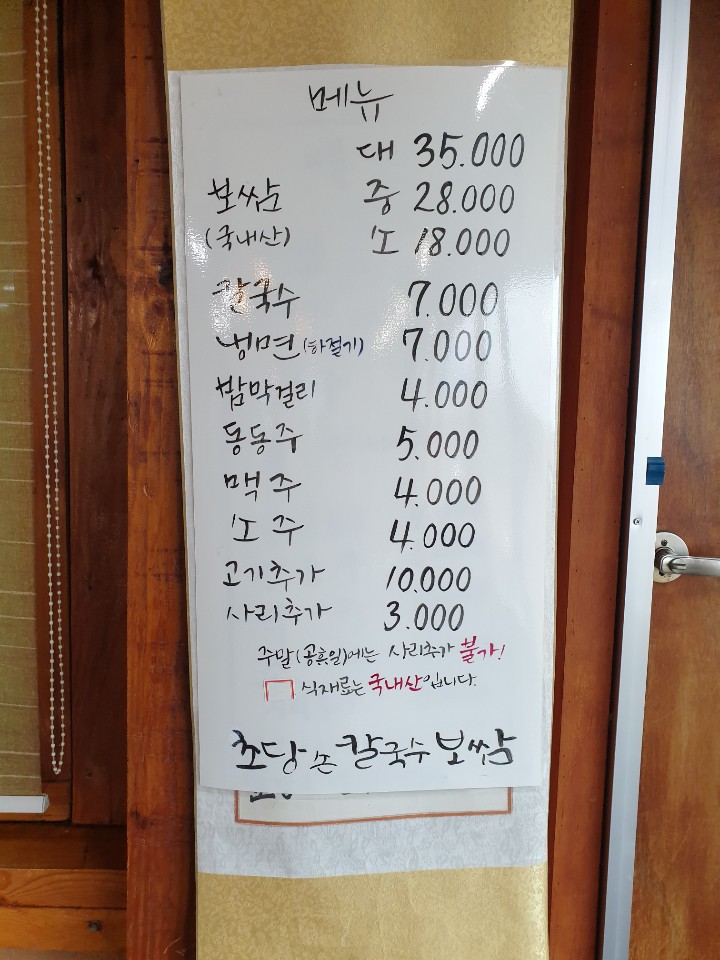 메뉴
대 35.000
보쌈 중 28.000
(국내산) 소 18.000
칼국수 7.000
냉면(하절기) 7.000
밤막걸리 4.000
동동주 5.000
맥주 4.000
소주 4.000
고기추가 10.000
사리추가 3.000
주말(공휴일)에는 사리추가 불가!
식재료는 국내산입니다.
초당 손 칼국수 보쌈